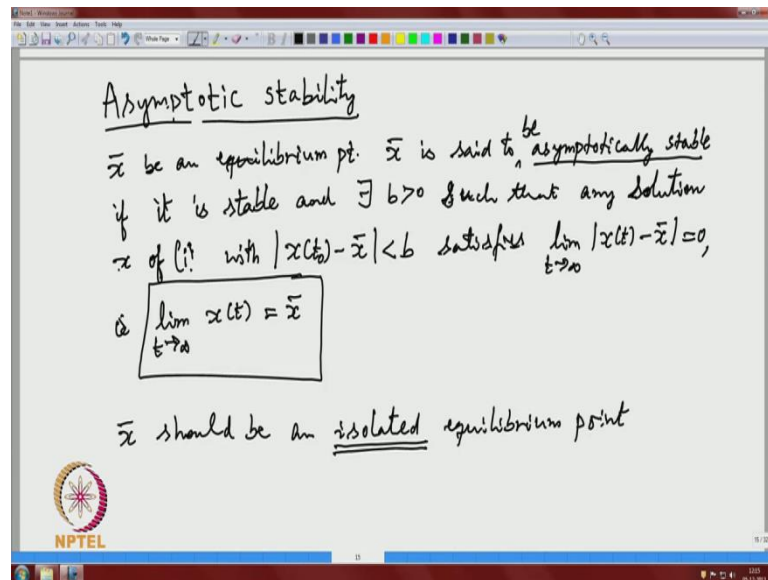 Note1 - Windows Journal
File Edit View Insert Actions Tools Help
Whole Page
Asymptotic stability
x̄ be an equilibrium pt. x̄ is said to be asymptotically stable
if it is stable and ∃ b>0 such that any solution
x of (1) with |x(t₀) - x̄| < b satisfies lim t→∞ |x(t) - x̄| = 0,
ie lim t→∞ x(t) = x̄
x̄ should be an isolated equilibrium point
NPTEL
15